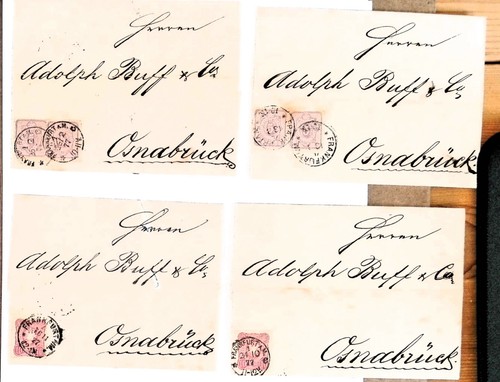 Herren
Adolph Buff & Co.
Osnabrück
Herren
Adolph Buff & Co.
Osnabrück
FRANKFURT
Herren
Adolph Buff & Co.
Osnabrück
FRANKFURT
Herren
Adolph Buff & Co.
Osnabrück
FRANKFURT A.M.